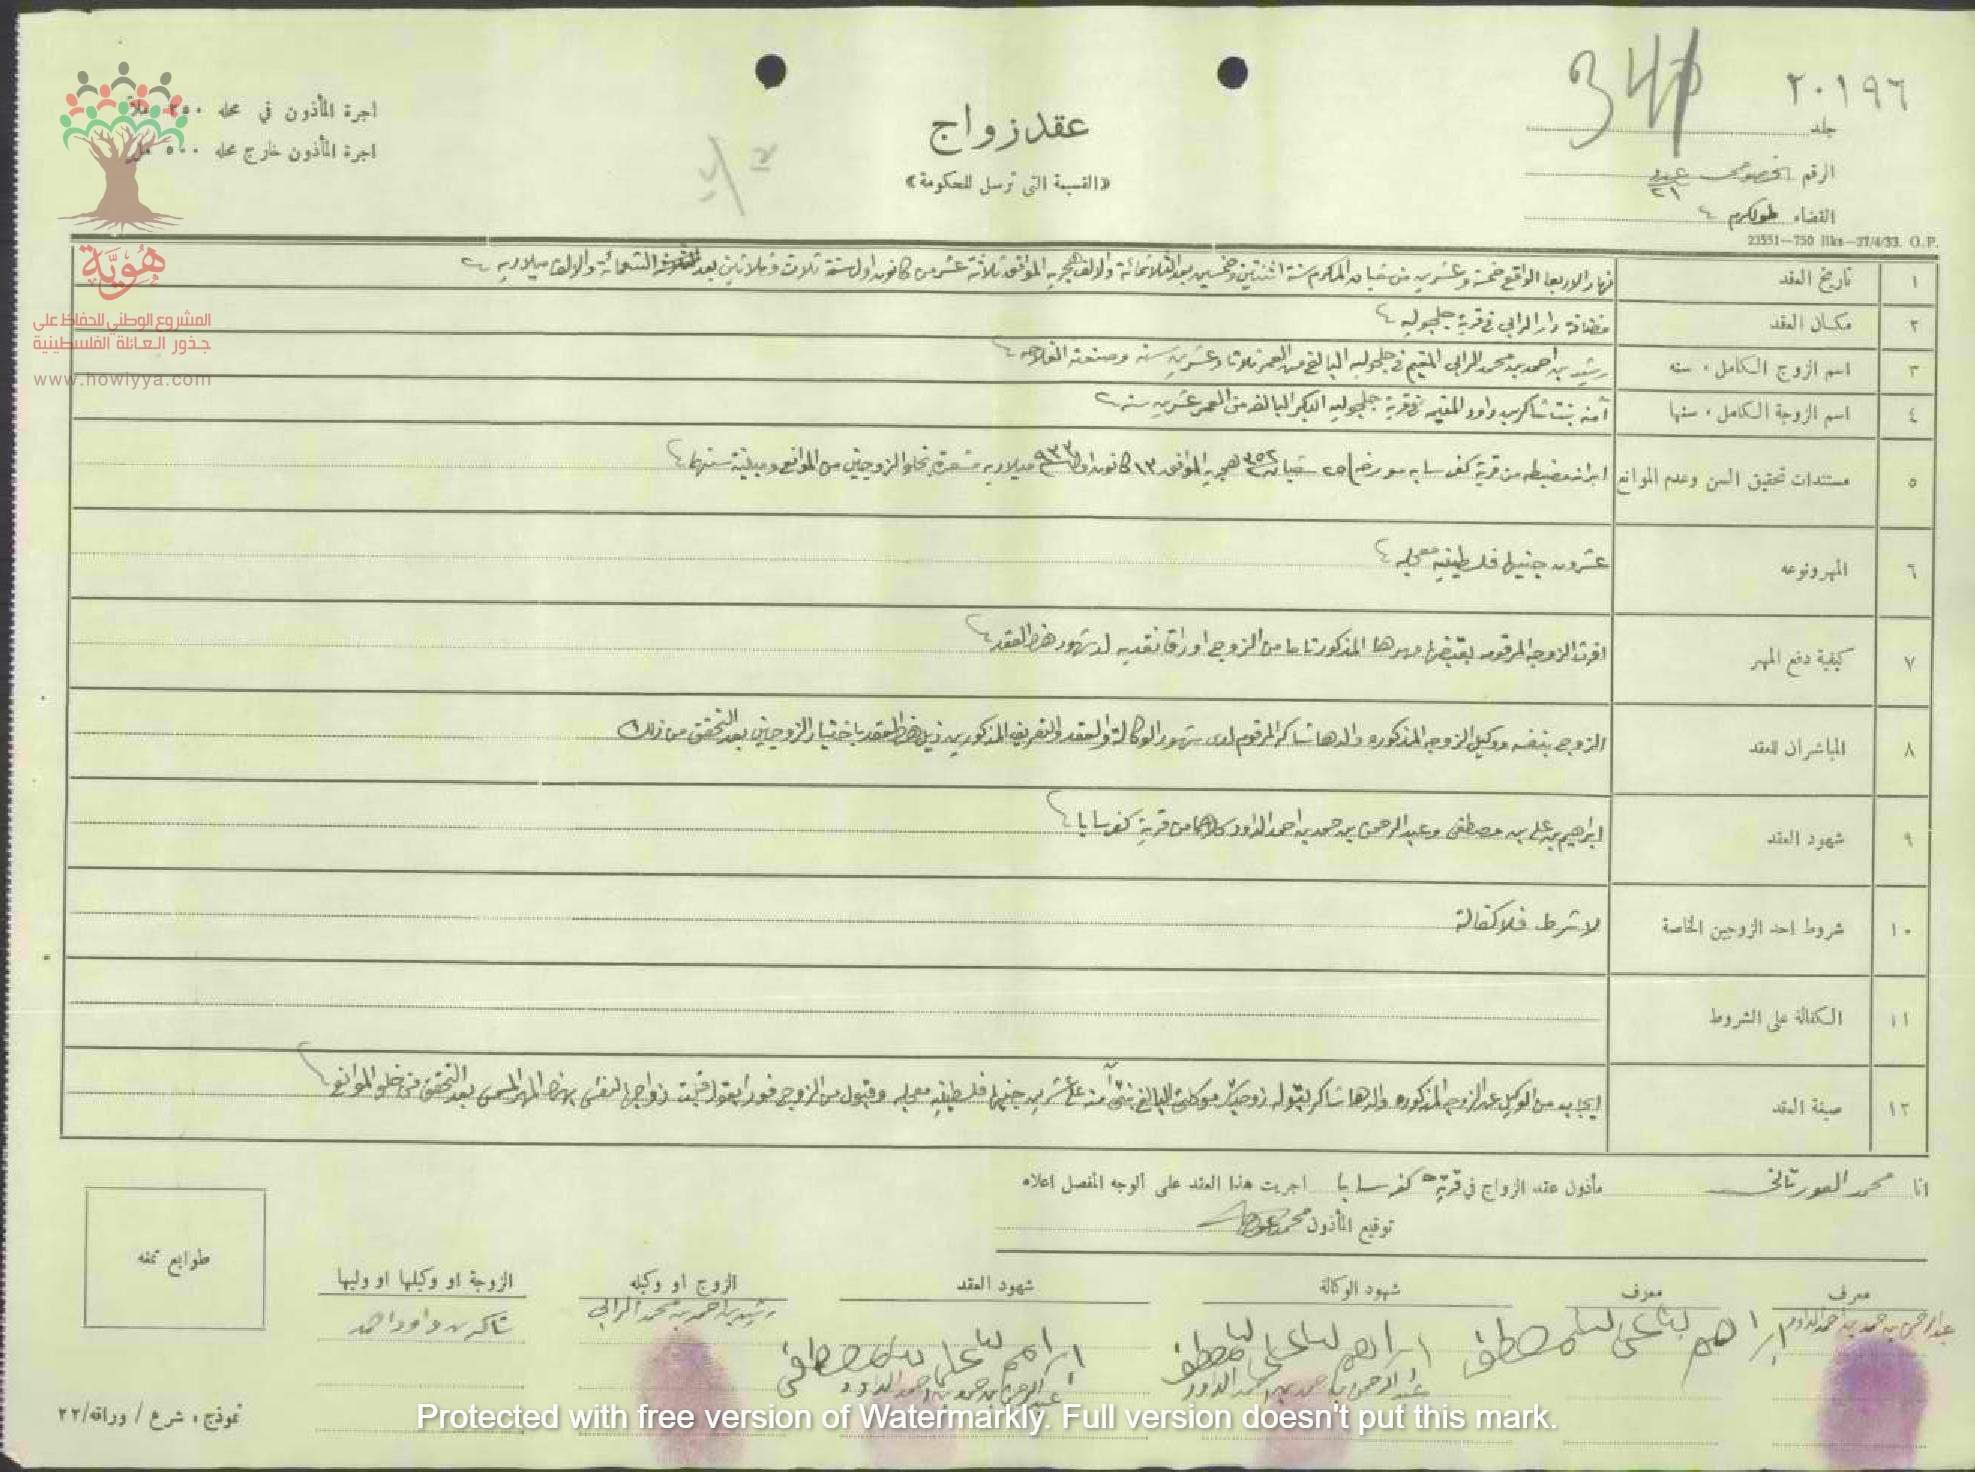 ٢٠١٩٦
341
جلد
الرقم الخصوصي
٢١
القضاء طولكرم
23551—750 Bks—27/4/33. G.P.
اجرة المأذون في محله ٢٥٠ ملاً
اجرة المأذون خارج محله ٥٠٠ مل
عقد زواج
«القسيمة التي ترسل للحكومة»
هُوِيَّة
المشروع الوطني للحفاظ على
جذور العائلة الفلسطينية
www.howiyya.com
١ تاريخ العقد نهار الاربعا الواقع خمسة وعشرين من شعبان المكرم سنة اثنتين وخمسين بعد الثلاثمائة والالف هجريه الموافق ثلاثة عشر من كانون اول سنة ثلاث وثلاثين بعد التسعمائة والالف ميلاديه
٢ مكان العقد دار الرابي في قرية جلجوليه
٣ اسم الزوج الكامل، سنه رشيد بن احمد بن محمد الرابي المقيم في جلجوليه البالغ من العمر ثلاثا وعشرين سنه وصنعته الفلاحه
٤ اسم الزوجة الكامل، سنها آمنه بنت شاكر بن داود المقيمه في قرية جلجوليه البكر البالغه من العمر عشرين سنه
٥ مستندات تحقيق السن وعدم الموانع ابراز مضبطه من قرية كفر سابه مورخه ٢٥ شعبان ٣٥٢ هجريه الموافق ١٣ كانون اول ٩٣٣ ميلاديه مشعرة بخلو الزوجين من الموانع ومبينة سنهما
٦ المهر ونوعه عشرون جنيها فلسطينيه معجله
٧ كيفية دفع المهر اقرت الزوجه المرقومه بقبضها مهرها المذكور تاما من الزوج اوراقا نقديه لدى شهود هذا العقد
٨ المباشران للعقد الزوج بنفسه ووكيل الزوجه المذكوره والدها شاكر المرقوم لدى شهود الوكالة والعقد والتعريف المذكورين ذيل هذا العقد باختيار الزوجين بعد التحقق من ذلك
٩ شهود العقد ابراهيم بن علي بن مصطفى وعبد الرحمن بن حمد بن احمد الداود كلاهما من قرية كفر سابا
١٠ شروط احد الزوجين الخاصة لا شرط فلا كفالة
١١ الكفالة على الشروط
١٢ صيغة العقد ايجاب من الوكيل عن الزوجه المذكوره والدها شاكر بقوله زوجتك موكلتي البالغ بنتي آمنه على عشرين جنيها فلسطينيه معجله وقبول من الزوج فورا بقوله قبلت زواجها لنفسي بهذا المهر المسمى بعد التحقق من خلو الموانع
انا محمد مأذون عقد الزواج في قرية كفر سابا اجريت هذا العقد على الوجه المفصل اعلاه
توقيع المأذون محمد
معرف
عبد الرحمن بن حمد بن احمد الداود
معرف
ابراهيم بن علي بن مصطفى
شهود الوكالة
ابراهيم بن علي بن مصطفى
عبد الرحمن بن حمد بن احمد الداود
شهود العقد
ابراهيم بن علي بن مصطفى
عبد الرحمن بن حمد بن احمد الداود
الزوج او وكيله
رشيد بن احمد بن محمد الرابي
الزوجة او وكيلها او وليها
شاكر بن داود احمد
طوابع تمغه
نموذج، شرع / وراقه/٢٢
Protected with free version of Watermarkly. Full version doesn't put this mark.